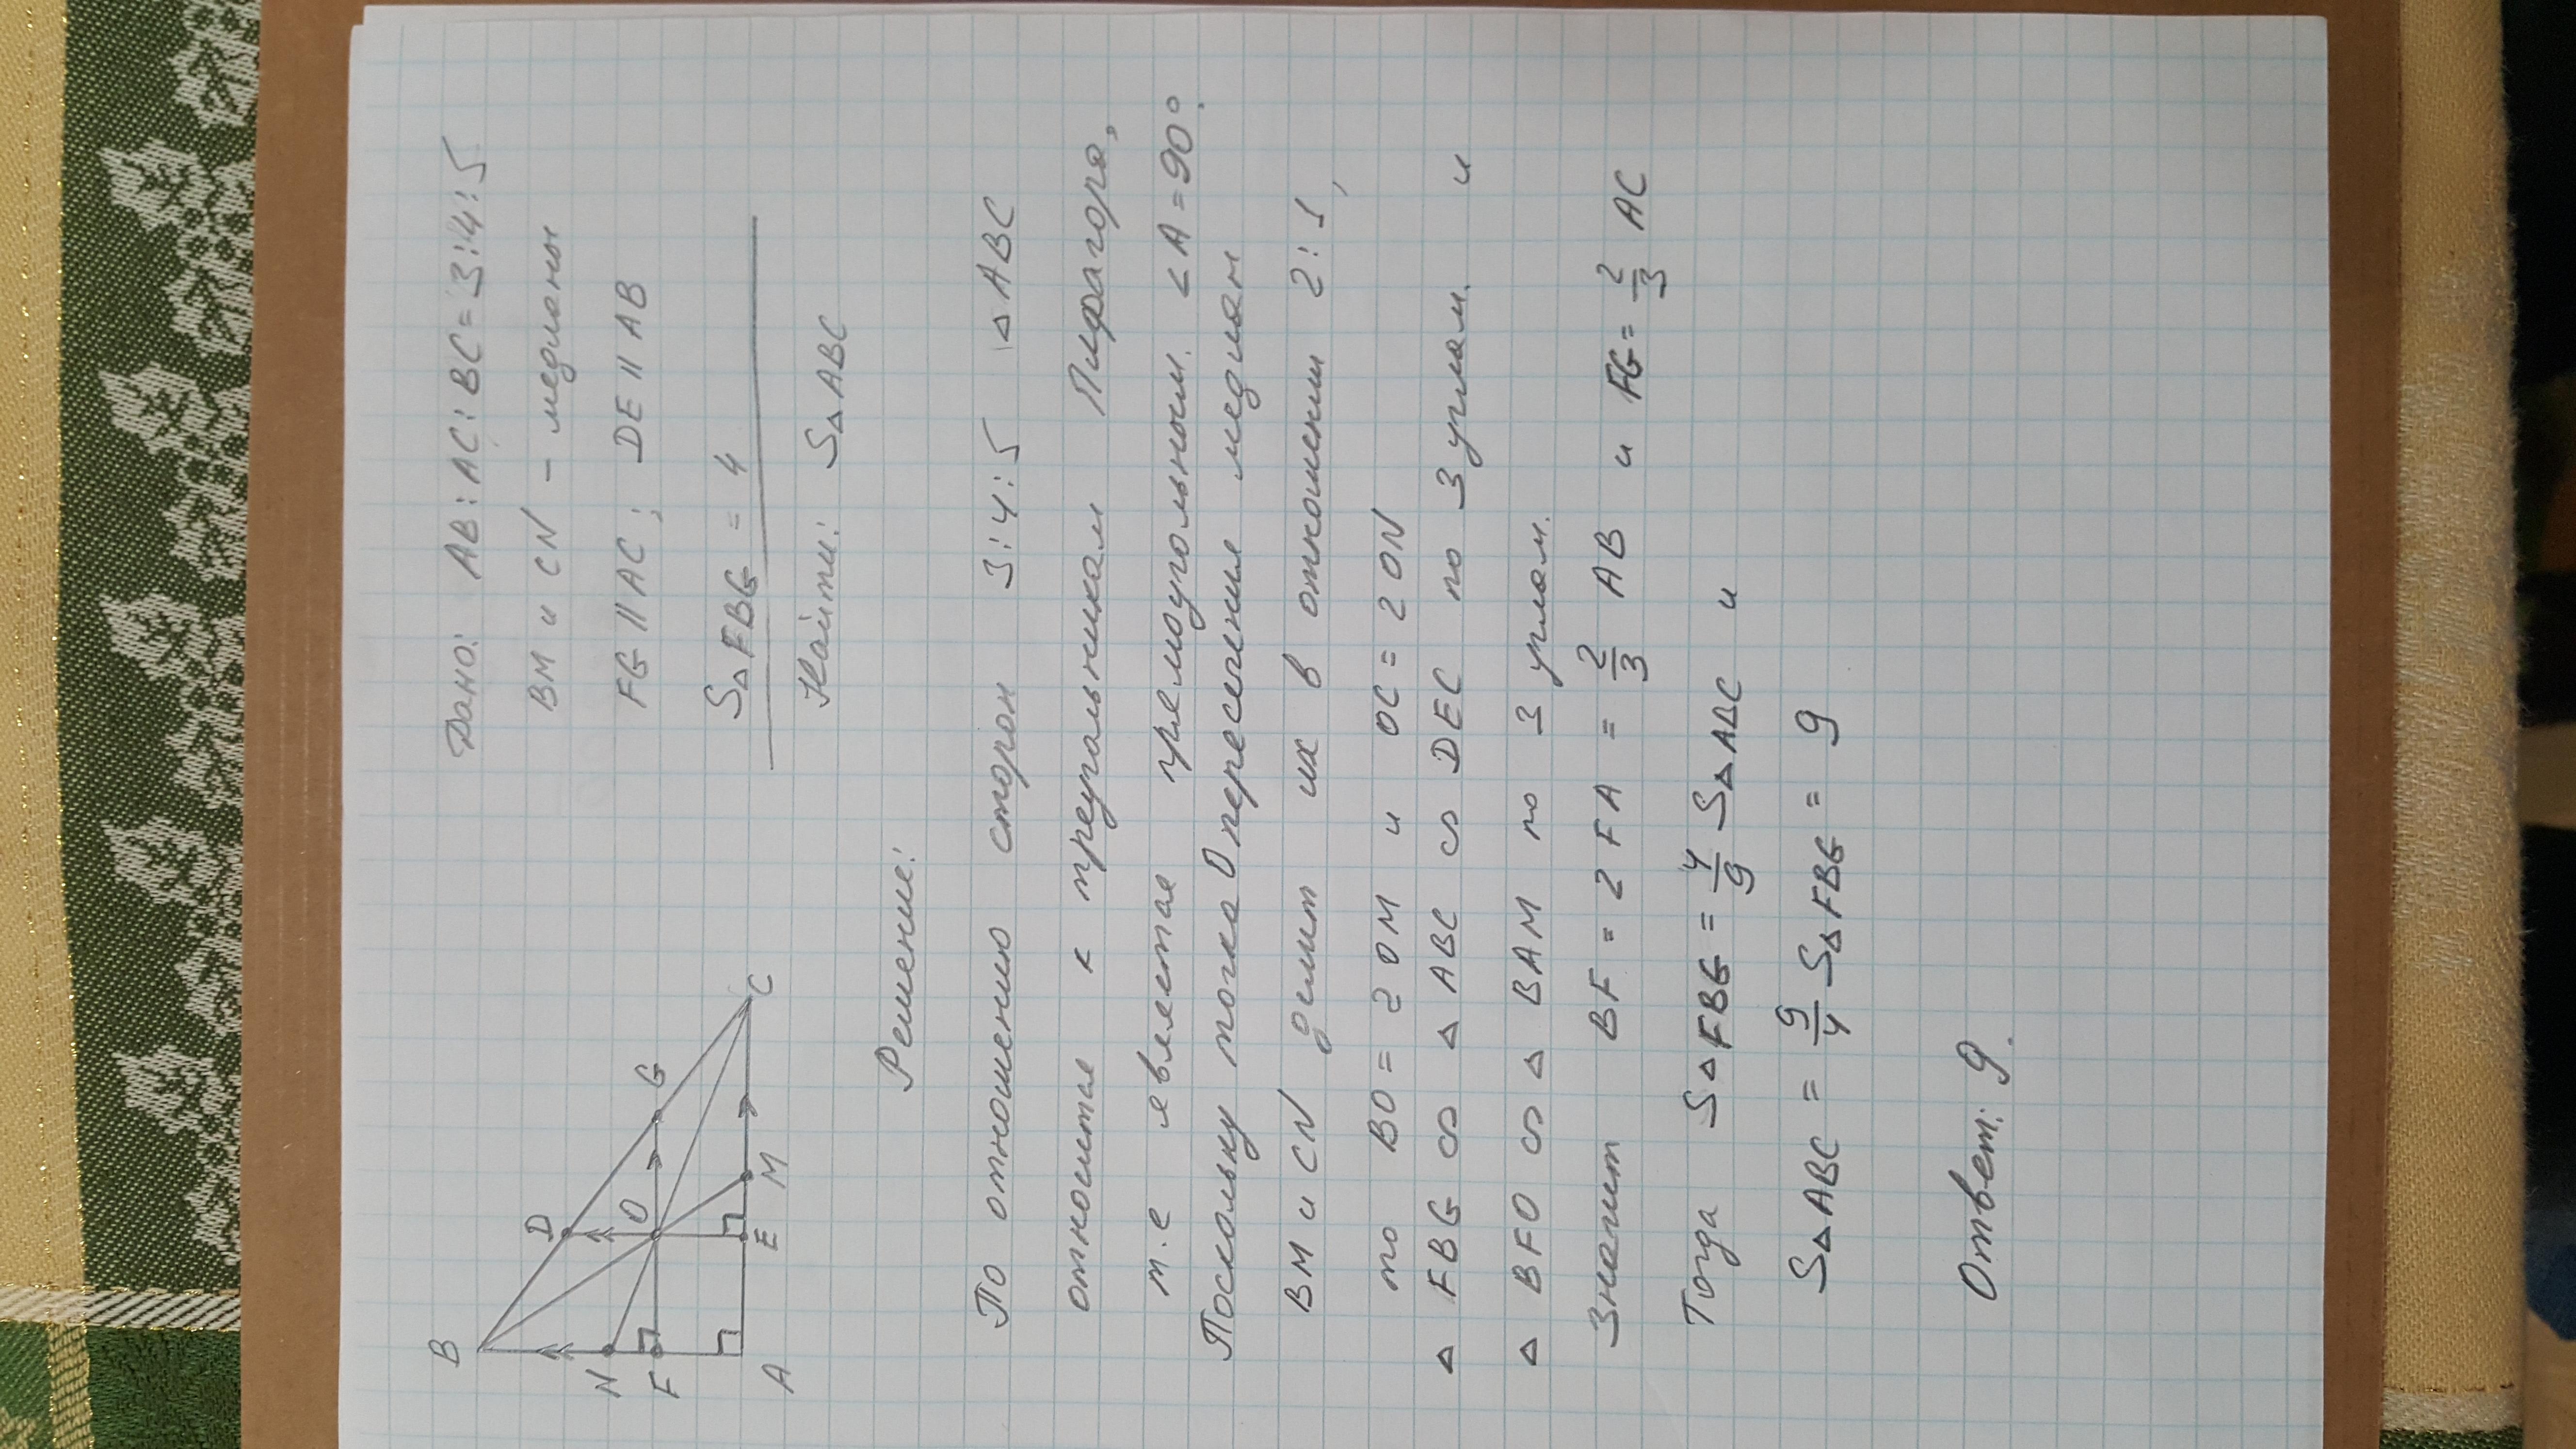 B
D
G
N
O
F
A
E
M
C
Дано: AB : AC : BC = 3:4:5
BM и CN - медианы
FG || AC ; DE || AB
S△FBG = 4
Найти: S△ABC
Решение:
По отношению сторон 3:4:5 △ABC
относится к треугольникам Пифагора,
т.е является прямоугольным. <A = 90°.
Поскольку точка O пересечения медиан
BM и CN делит их в отношении 2:1,
то BO = 2 OM и OC = 2 ON
△ FBG ∽ △ ABC ∽ DEC по 3 углам. и
△ BFO ∽ △ BAM по 3 углам.
Значит BF = 2 FA = 2/3 AB и FG = 2/3 AC
Тогда S△FBG = 4/9 S△ABC и
S△ABC = 9/4 S△FBG = 9
Ответ: 9.